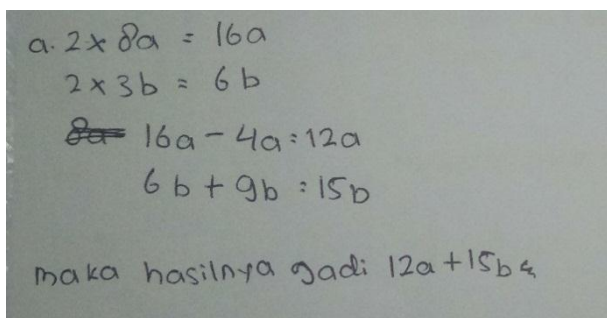 a. 2 x 8a = 16a
2 x 3b = 6b
16a - 4a = 12a
6b + 9b = 15b
maka hasilnya gadi 12a + 15b